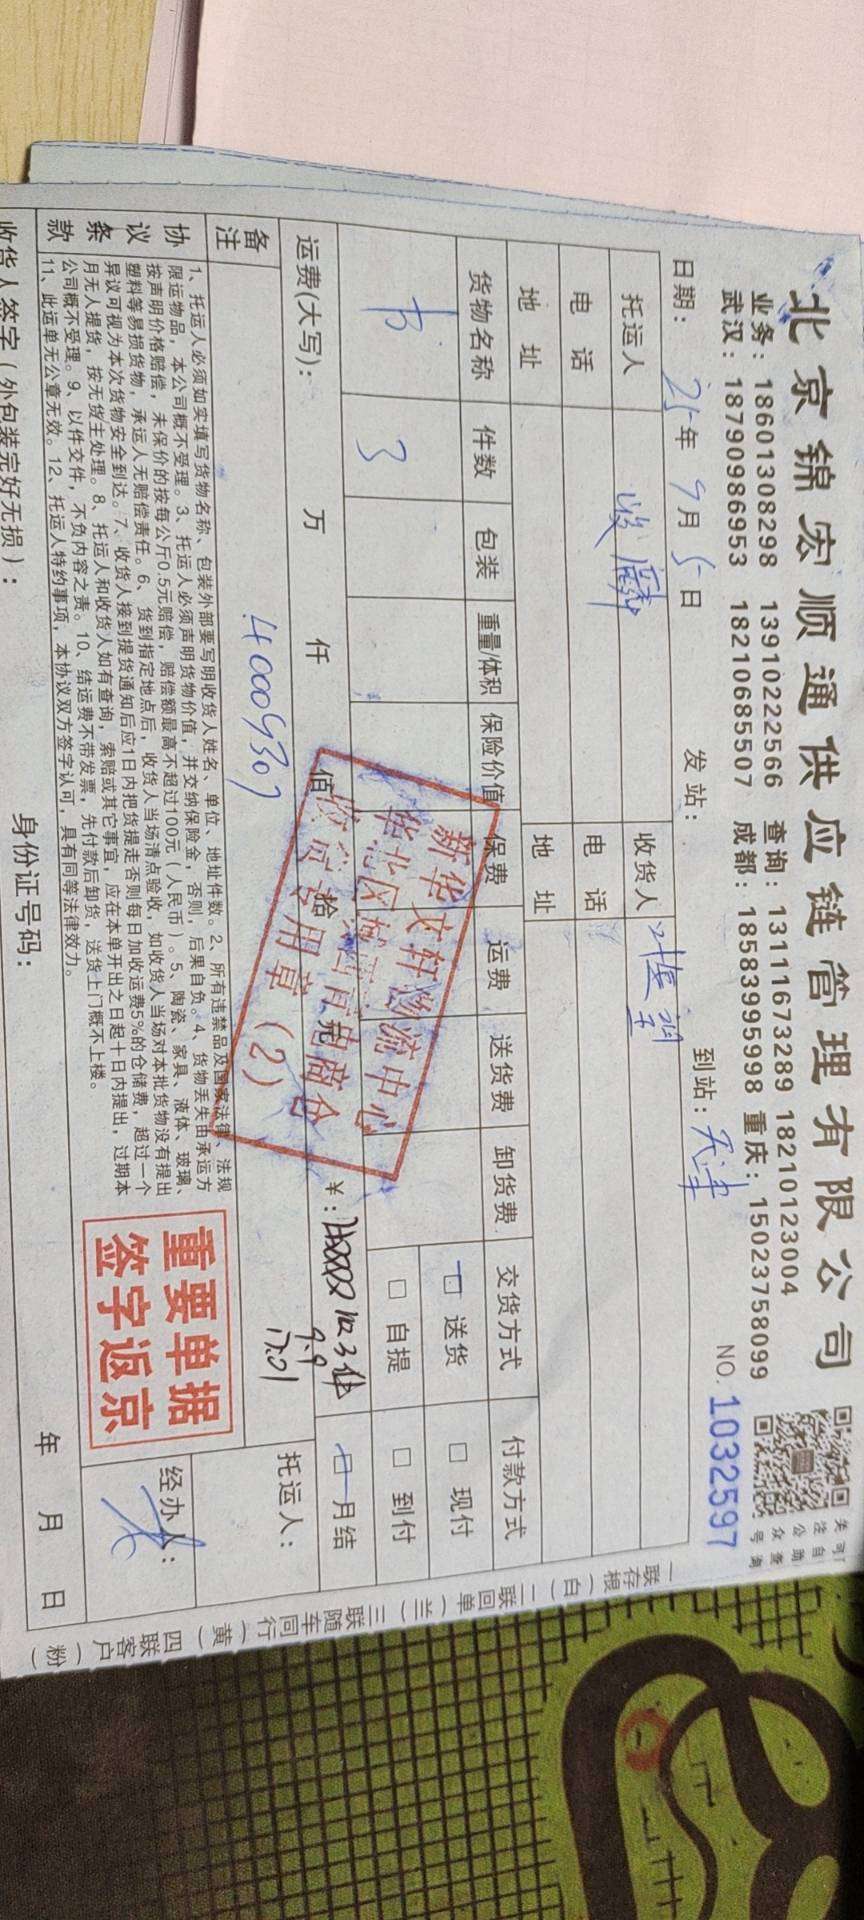 北京锦宏顺通供应链管理有限公司
业务：18601308298 13910222566 查询：13111673289 18210123004
武汉：18790986953 18210685507 成都：18583995998 重庆：15023758099
日期：25年9月5日 发站： 到站：天津 NO. 1032597
托运人 收货人
电话 电话
地址 地址
货物名称 件数 包装 重量/体积 保险价值 保费 运费 送货费 卸货费 交货方式 付款方式
书 3 送货 现付
自提 到付
运费(大写)： 万 仟 佰 拾 元 ¥： 收3件 月结
9.9
17:01
备注 4000930 托运人：
新华文轩物流中心
收货专用章（2）
协议条款
1、托运人必须如实填写货物名称、包装外部要写明收货人姓名、单位、地址件数。2、所有违禁品及国家法律、法规
限运物品，本公司概不受理。3、托运人必须声明货物价值，并交纳保险金，否则，后果自负。4、货物丢失由承运方
按声明价格赔偿，未保价的按每公斤0.5元赔偿，赔偿额最高不超过100元（人民币）。5、陶瓷、家具、液体、玻璃、
塑料等易损货物，承运人无赔偿责任。6、货到指定地点后，收货人当场清点验收，如收货人当场对本批货物没有提出
异议可视为本次货物安全到达。7、收货人接到提货通知后应1日内把货提走否则每日加收运费5%的仓储费，超过一个
月无人提货，按无货主处理。8、托运人和收货人如有查询，索赔或其它事宜，应在本单开出之日起十日内提出，过期本
公司概不受理。9、以件交件，不负内容之责。10、结运费不带发票，先付款后卸货，送货上门概不上楼。
11、此运单无公章无效。12、托运人特约事项，本协议双方签字认可，具有同等法律效力。
重要单据
签字返京
经办人：
收货人签字（外包装完好无损）： 身份证号码： 年 月 日
一联存根（白）二联回单（兰）三联随车同行（黄）四联客户（粉）